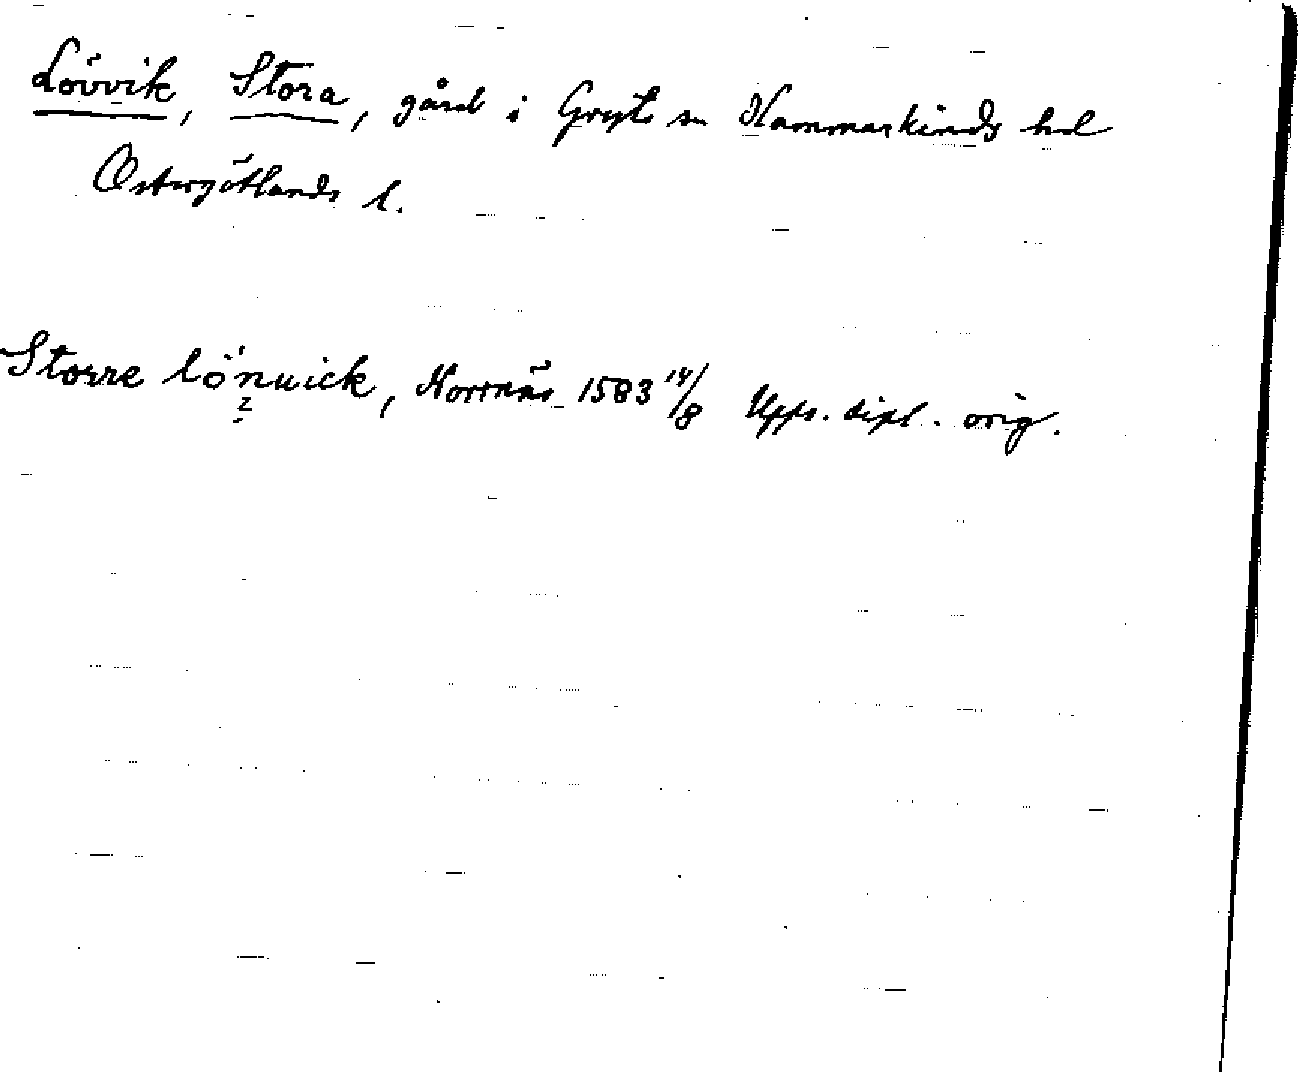 Lövvik, Stora, gård i Gryts sn Hammarkinds hd
Östergötlands l.
Storre lönuick, Norrnäs 1583 14/8 Upps. dipl. orig.